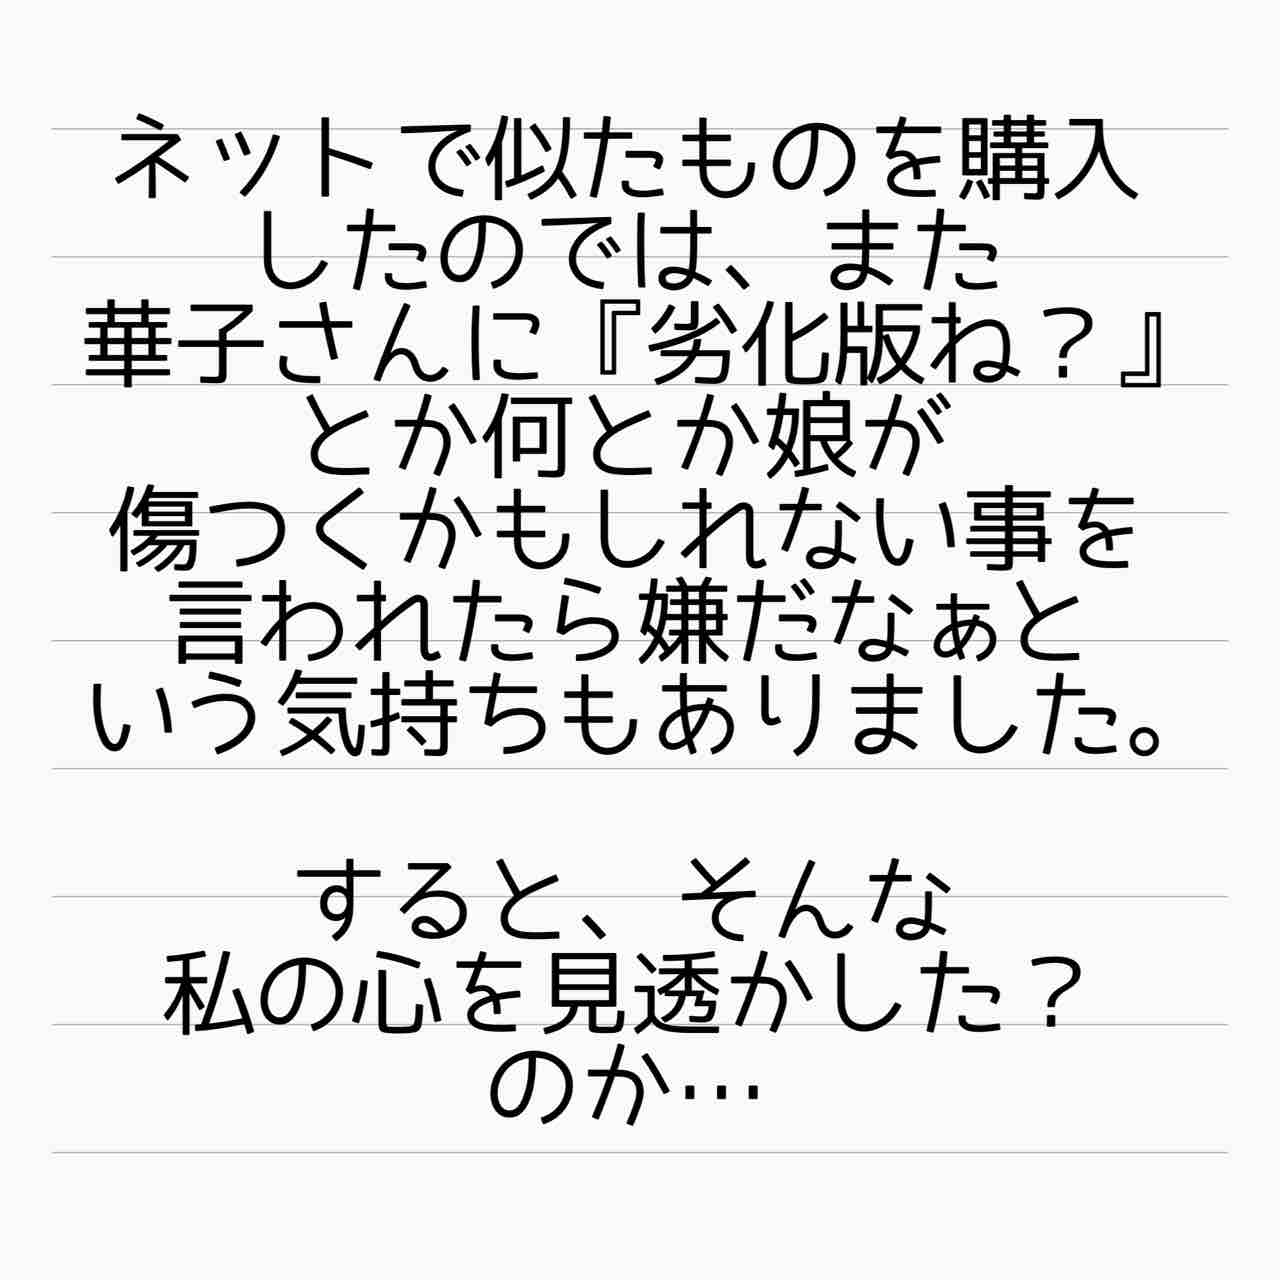 ネットで似たものを購入
したのでは、また
華子さんに『劣化版ね？』
とか何とか娘が
傷つくかもしれない事を
言われたら嫌だなぁと
いう気持ちもありました。
すると、そんな
私の心を見透かした？
のか…